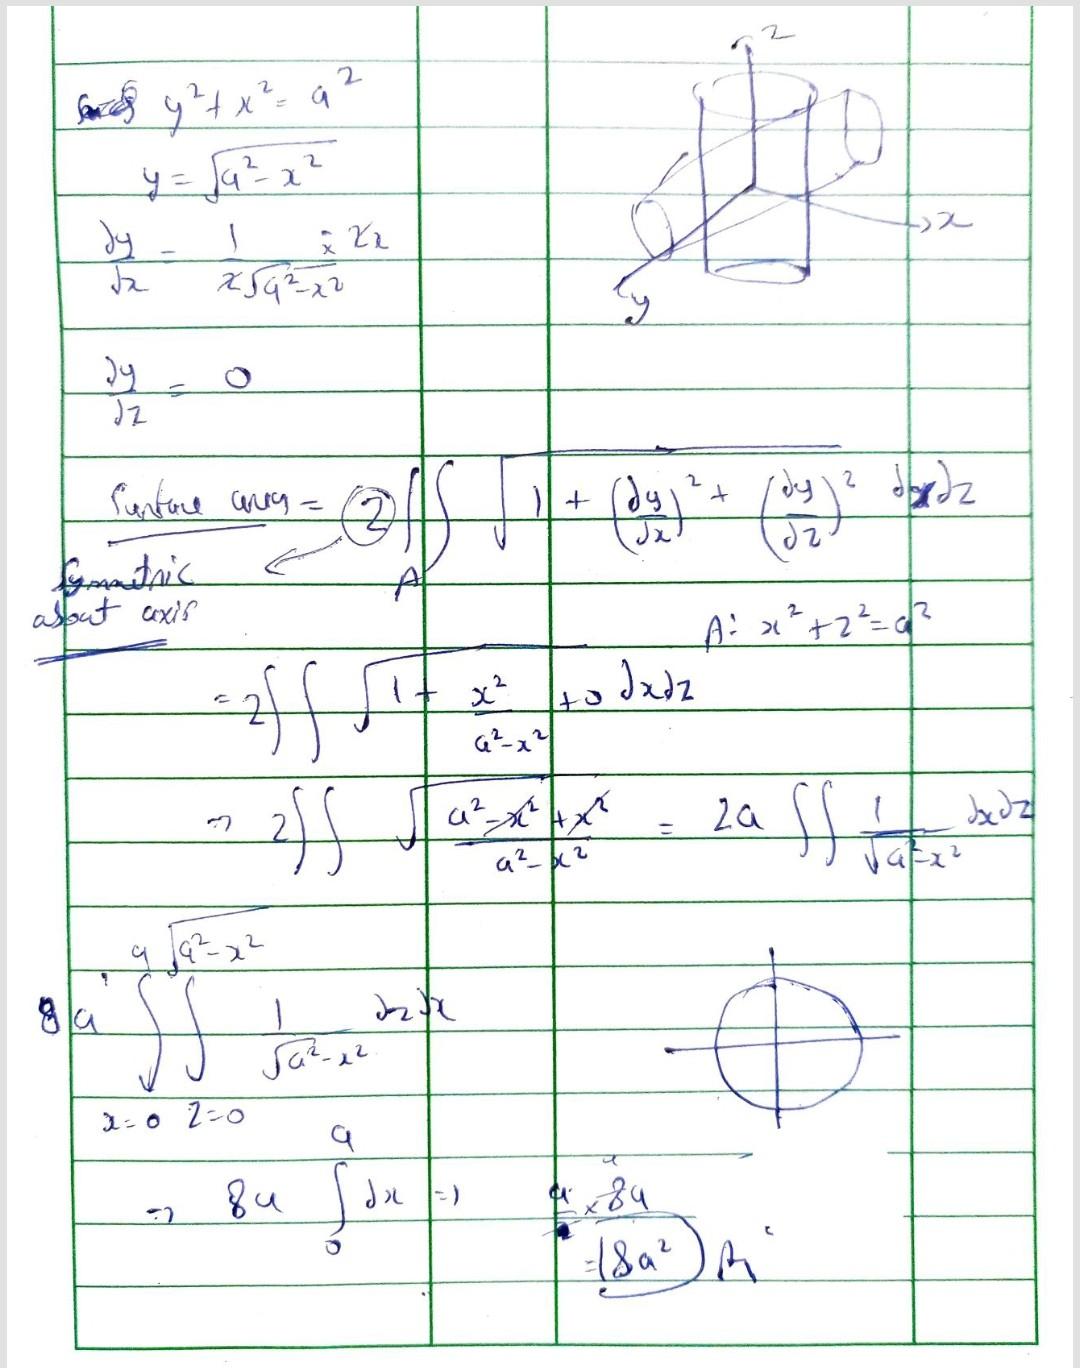 y² + x² = a²
y = √(a² - x²)
∂y/∂x = 1/(2√(a² - x²)) × 2x
∂y/∂z = 0
z
x
y
Surface area = 2 ∫∫ √(1 + (∂y/∂x)² + (∂y/∂z)²) dxdz
A
Symmetric
about axis
A: x² + z² = a²
= 2∫∫ √(1 + x²/(a² - x²) + 0) dxdz
⇒ 2∫∫ √((a² - x² + x²)/(a² - x²)) = 2a ∫∫ 1/√(a² - x²) dxdz
8a ∫_{x=0}^{a} ∫_{z=0}^{√(a² - x²)} 1/√(a² - x²) dzdx
⇒ 8a ∫_0^a dx ⇒ a × 8a
= 8a²